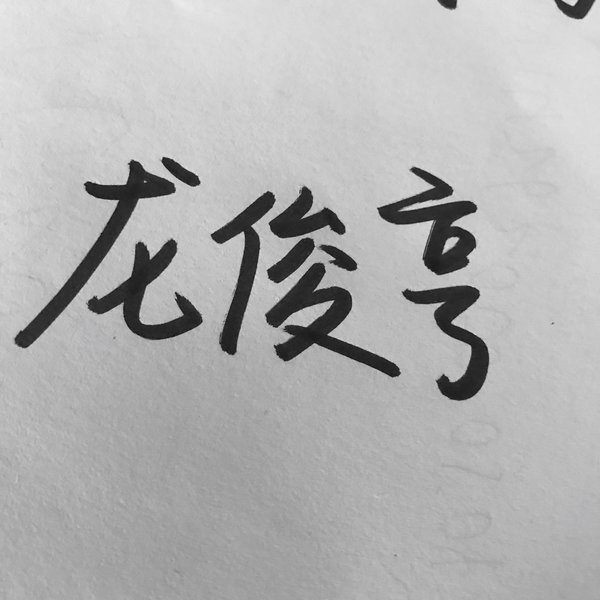 龙俊亨